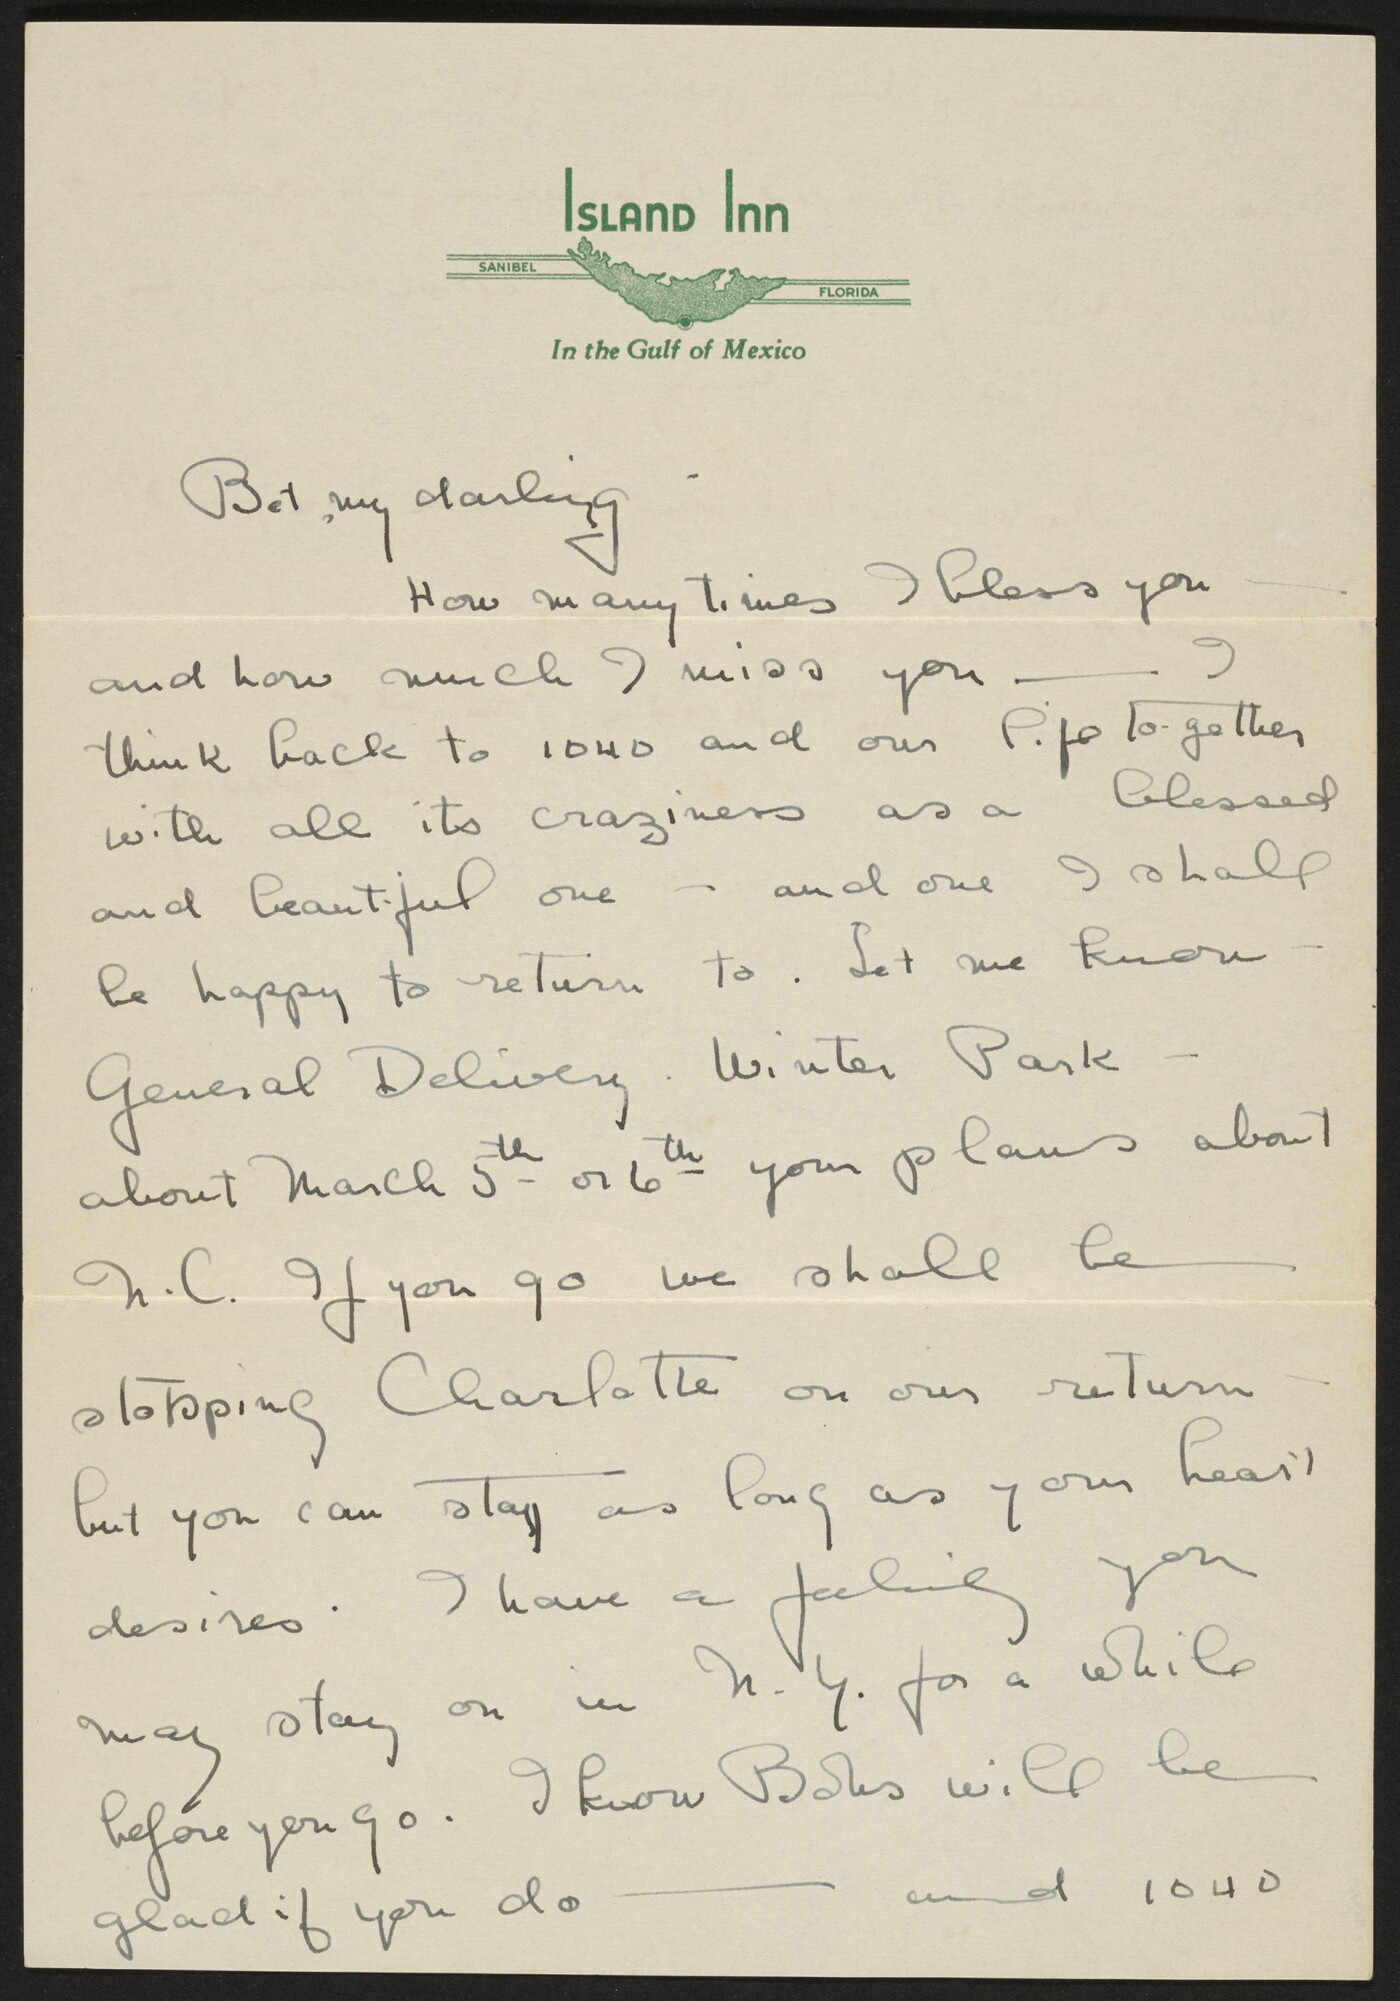 Island Inn
SANIBEL
FLORIDA
In the Gulf of Mexico
Bet, my darling -
How many times I bless you —
and how much I miss you — I
think back to 1040 and our life to-gether
with all its craziness as a blessed
and beautiful one - and one I shall
be happy to return to. Let me know -
General Delivery. Winter Park -
about March 5th or 6th your plans about
N.C. If you go we shall be
stopping Charlotte on our return -
but you can stay as long as your heart
desires. I have a feeling you
may stay on in N.Y. for a while
before you go. I know will be
glad if you do — and 1040